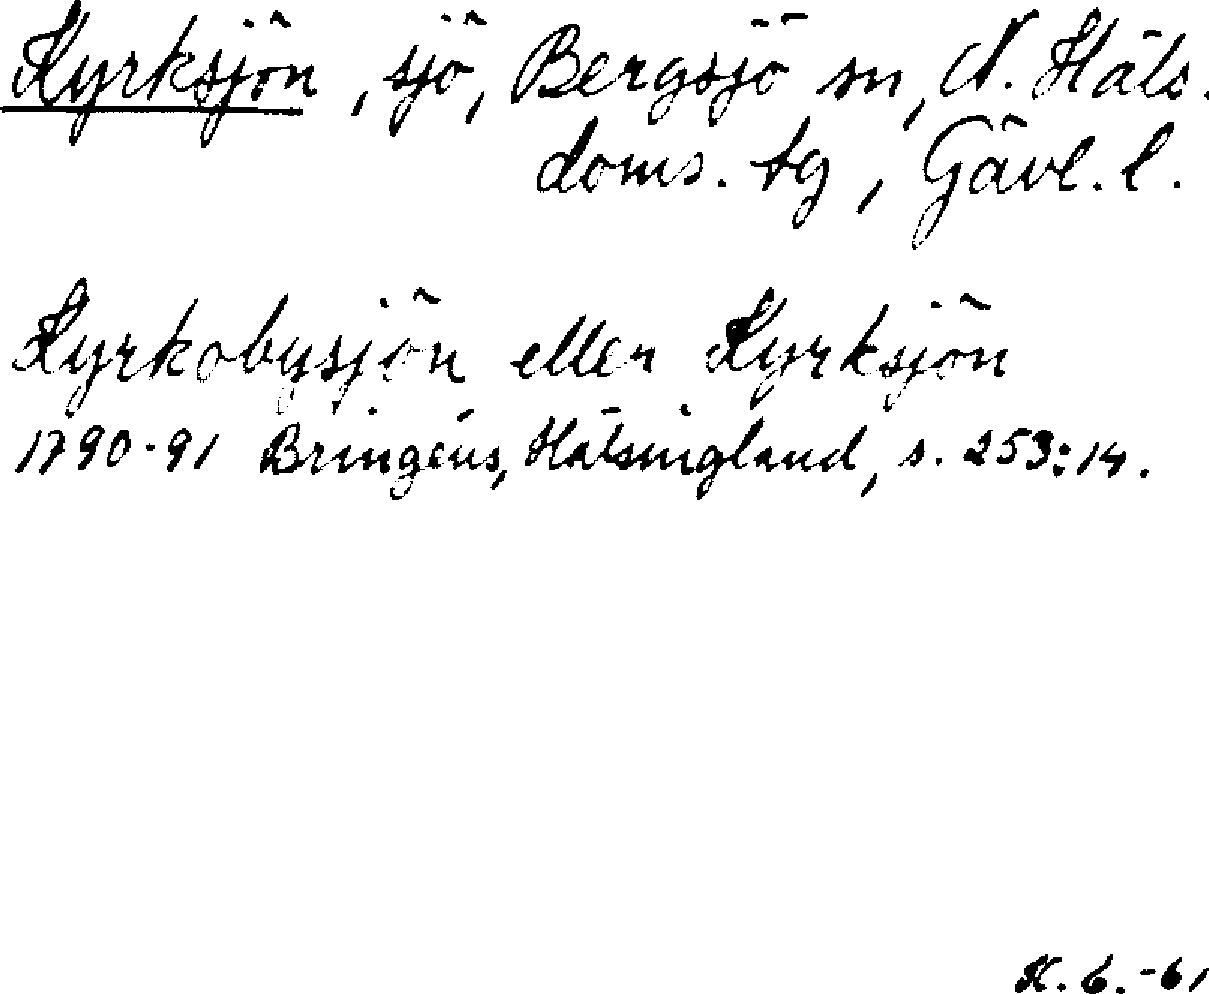 Kyrksjön, sjö, Bergsjö sn, N. Häls.
doms. tg, Gävl. l.
Kyrkobysjön eller Kyrksjön
1790-91 Bringéus, Hälsingland, s. 253:14.
K. G. -61